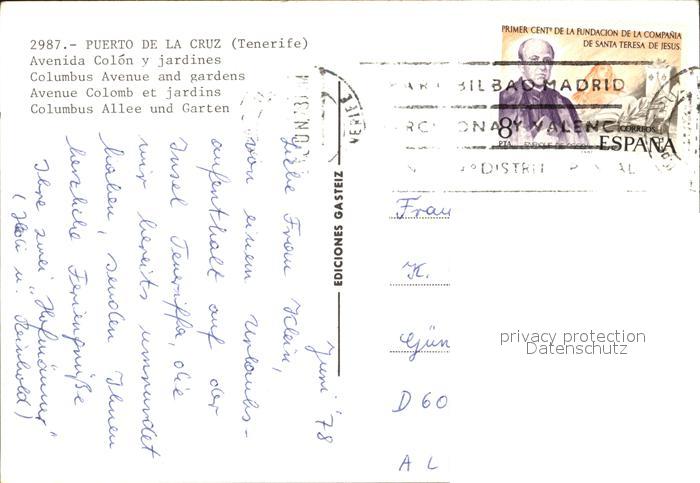 2987.- PUERTO DE LA CRUZ (Tenerife)
Avenida Colón y jardines
Columbus Avenue and gardens
Avenue Colomb et jardins
Columbus Allee und Garten
PRIMER CENTº DE LA FUNDACION DE LA COMPAÑIA
DE SANTA TERESA DE JESUS
BILBAO MADRID
VALENC
DISTRI
8
PTA
CORREOS
ESPAÑA
EDICIONES GASTEIZ
Juni '78
Liebe Frau Klein,
von einem Urlaubs-
aufenthalt auf der
Insel Teneriffa, die
wir bereits umrundet
haben, senden Ihnen
herzliche Feriengrüße
Ihre zwei "Hofmänner"
( u. Reinhold)
Frau
K.
Gün
D 60
A L
privacy protection
Datenschutz